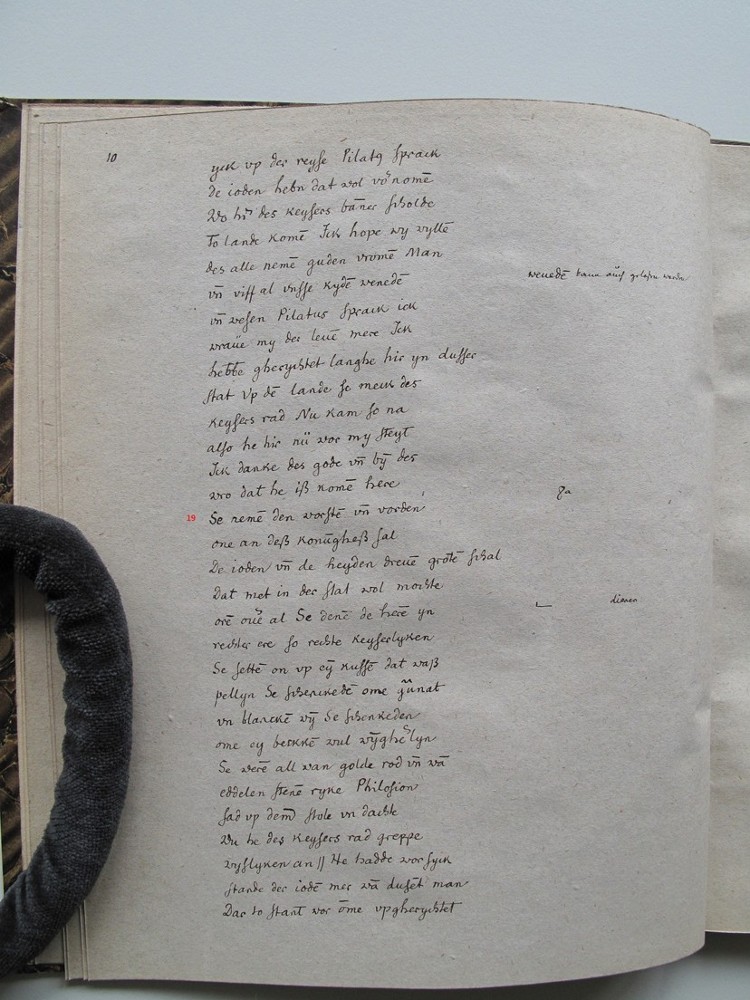 10
yck vp der reyse Pilatꝫ sprack
De ioden hebn dat wol vornomē
Wo hir des keysers baner scholde
To lande komē Ick hope wy wyllē
des alle nemē guden vromē Man
weuedē kann auch gelesen werden
vn̄ viff al vnsse kydē weuedē
vn̄ wesen Pilatus sprack ick
my der leuē mere Ick
hebbe gherychtet langhe hir yn dusser
stat vp dē lande se merck des
keysers rad Nu kam so na
also he hir nū vor my steyt
Ick danke des gode vn̄ by des
wo dat he iß komē here
ga
19 Se nemē den vorstē vn̄ vorden
one an deß konūgheß sal
De ioden vn̄ de heyden dreuē grotē schal
Dat met in der stat wol mochte
dienen
orē al Se denē de herē yn
rechter ere so rechte keyserlyken
Se settē on vp ey kussē dat waß
pellyn Se schenckedē ome
vn blanckē wȳ Se schenkeden
ome ey beckē wul
Se werē all van golde rod vn̄ vā
eddelen stenē ryke Philosion
sad vp dem stole vn dachte
Wu he des keysers rad greppe
wyslyken an || He hadde vor syck
stande der iodē mer wā dusēt man
Dar to stant vor ōme vpgherychtet